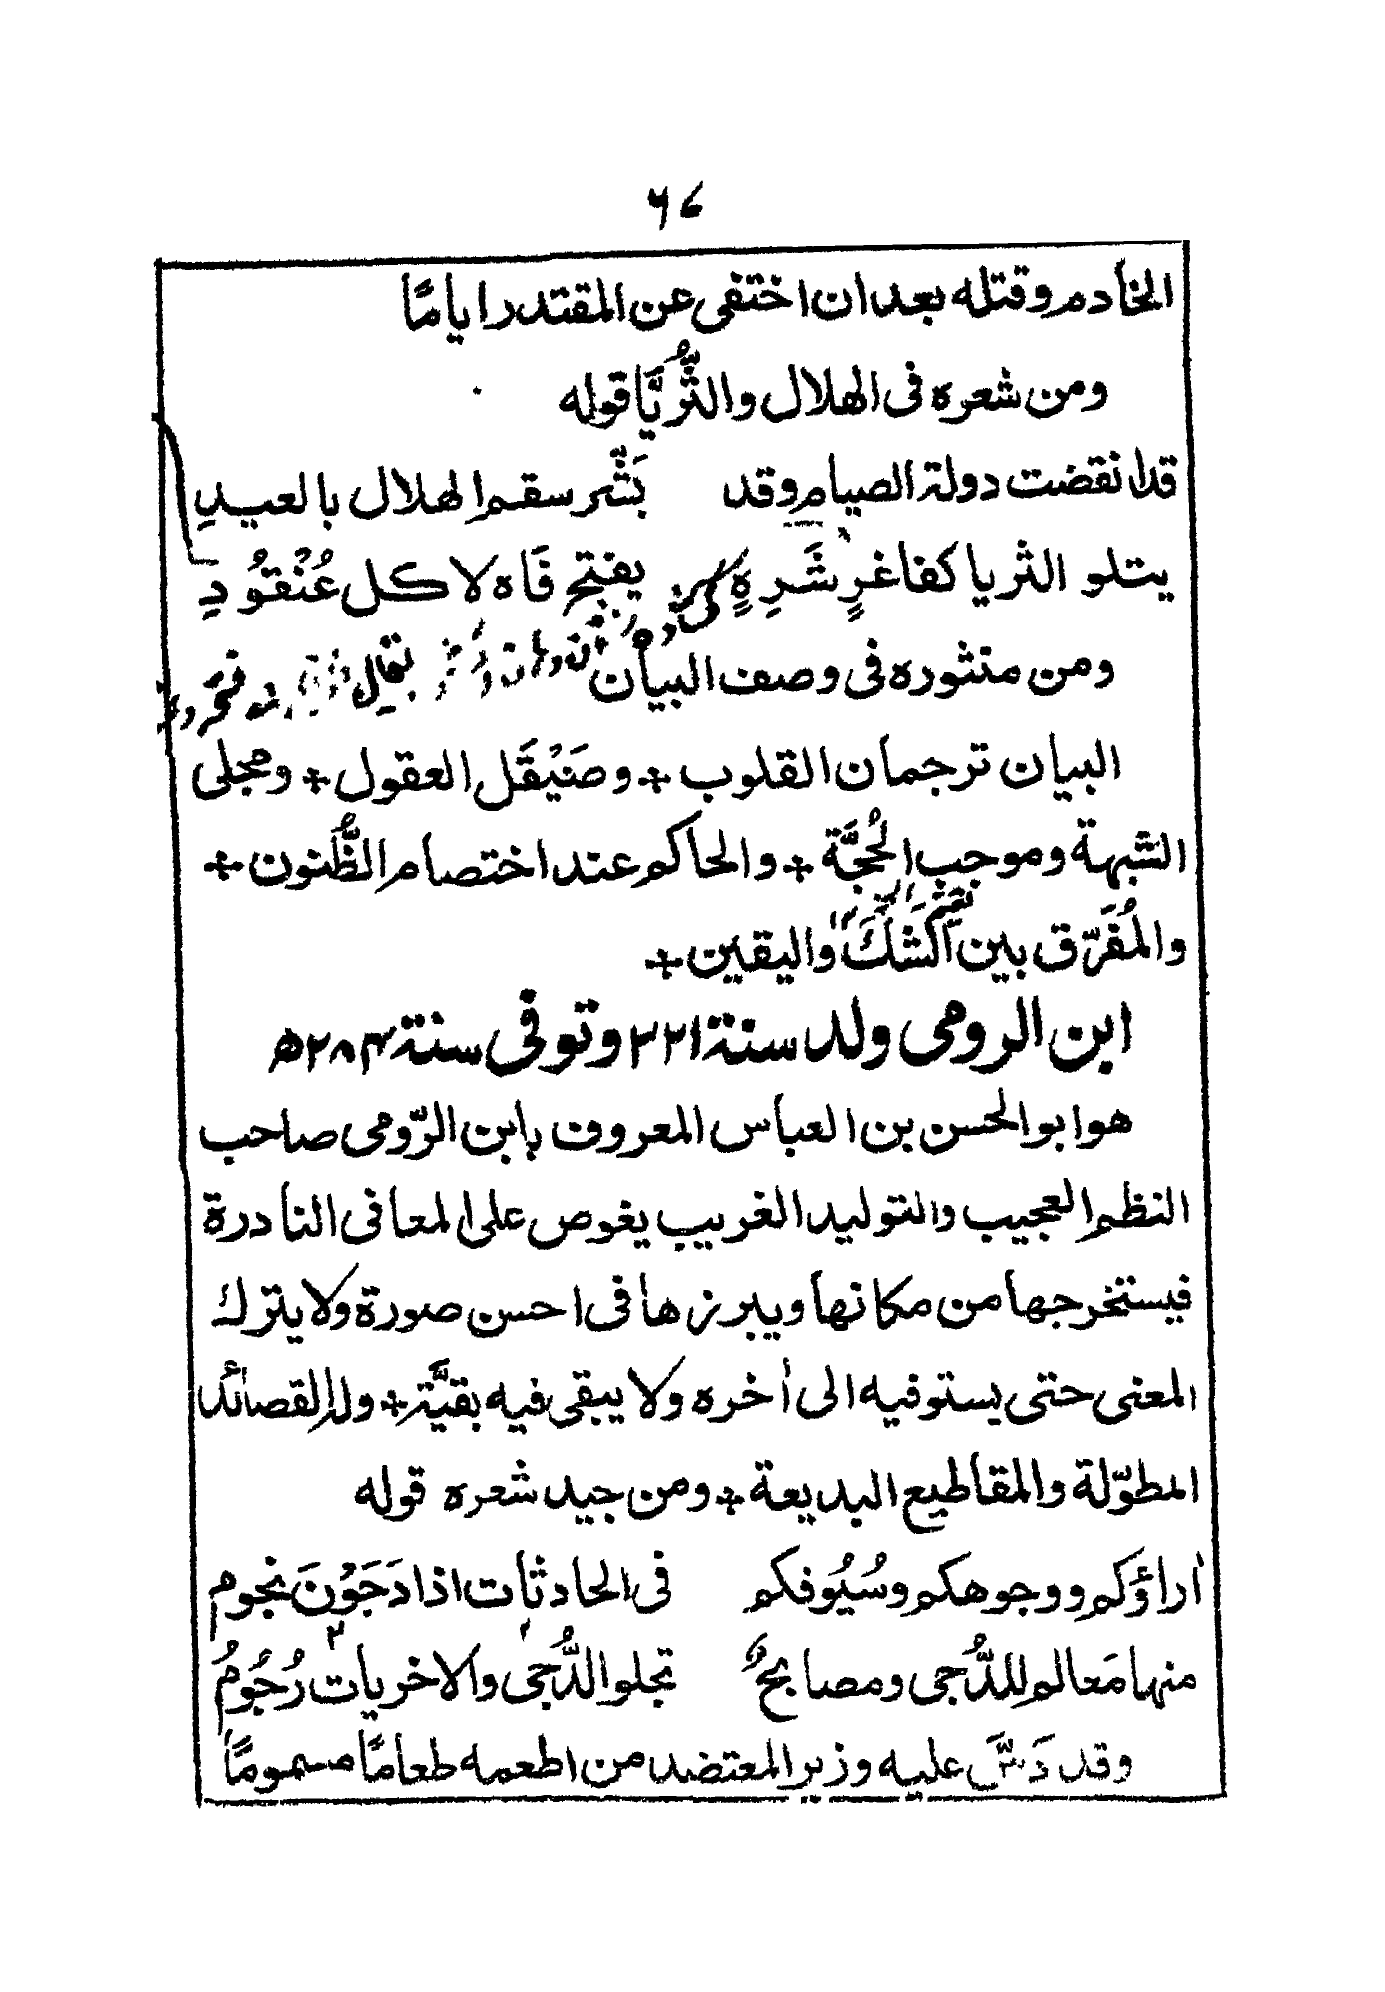 ٦٤
الخادم وقتله بعد ان اختفى عن المقتدر اياما
ومن شعره فى الهلال والثُّريَّا قوله
قد انقضت دولة الصيام وقد بَشّر سقم الهلال بالعيدِ
يتلو الثريا كفاغرٍ شَرِهٍ يفتح فَاه لاكل عُنْقُودِ
ومن منثوره فى وصف البيان
البيان ترجمان القلوب + وصَيْقَل العقول + ومجلى
الشبهة وموجب الحُجَّة + والحاكم عند اختصام الظُّنون +
والمُفَرّق بين الشَّكّ واليقين +
ابن الرومى ولد سنة ٢٢١ وتوفى سنة ٢٨٤ھ
هو ابو الحسن بن العباس المعروف بابن الرّومى صاحب
النظم العجيب والتوليد الغريب يغوص على المعانى النادرة
فيستخرجها من مكانها ويبرزها فى احسن صورة ولا يترك
المعنى حتى يستوفيه الى اٰخره ولا يبقى فيه بقيَّة + وله القصائد
المطوّلة والمقاطيع البديعة + ومن جيد شعره قوله
اٰراؤكم ووجوهكم وسُيُوفكم فى الحادثات اذا دَجَوْنَ نجوم
منها مَعالم للدُّجى ومصابحٌ تجلو الدُّجى والاخريات رُجُومُ
وقد دَسَّ عليه وزير المعتضد من اطعمه طعامًا مسمومًا